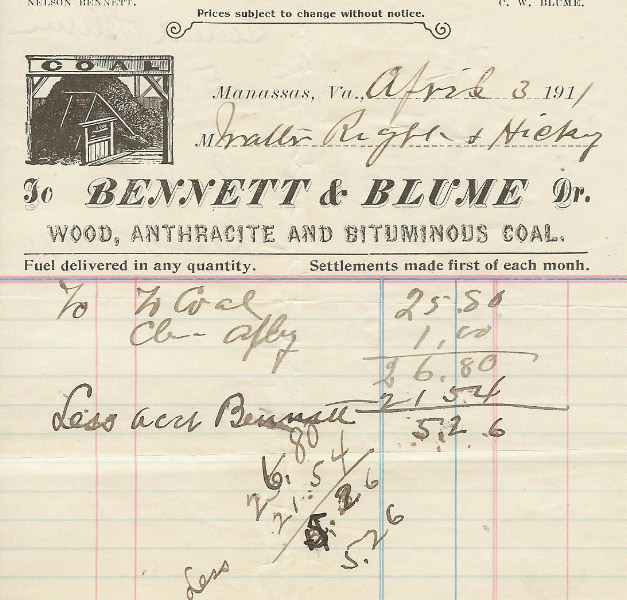 NELSON BENNETT. C. W. BLUME.
Prices subject to change without notice.
COAL
Manassas, Va., April 3 1911
M & Hickey
To BENNETT & BLUME Dr.
WOOD, ANTHRACITE AND BITUMINOUS COAL.
Fuel delivered in any quantity. Settlements made first of each monh.
To To Coal 25.80
1.00
26.80
Less acct Bennett 21.54
5.26
26.80
21.54
5.26
5.26
Less